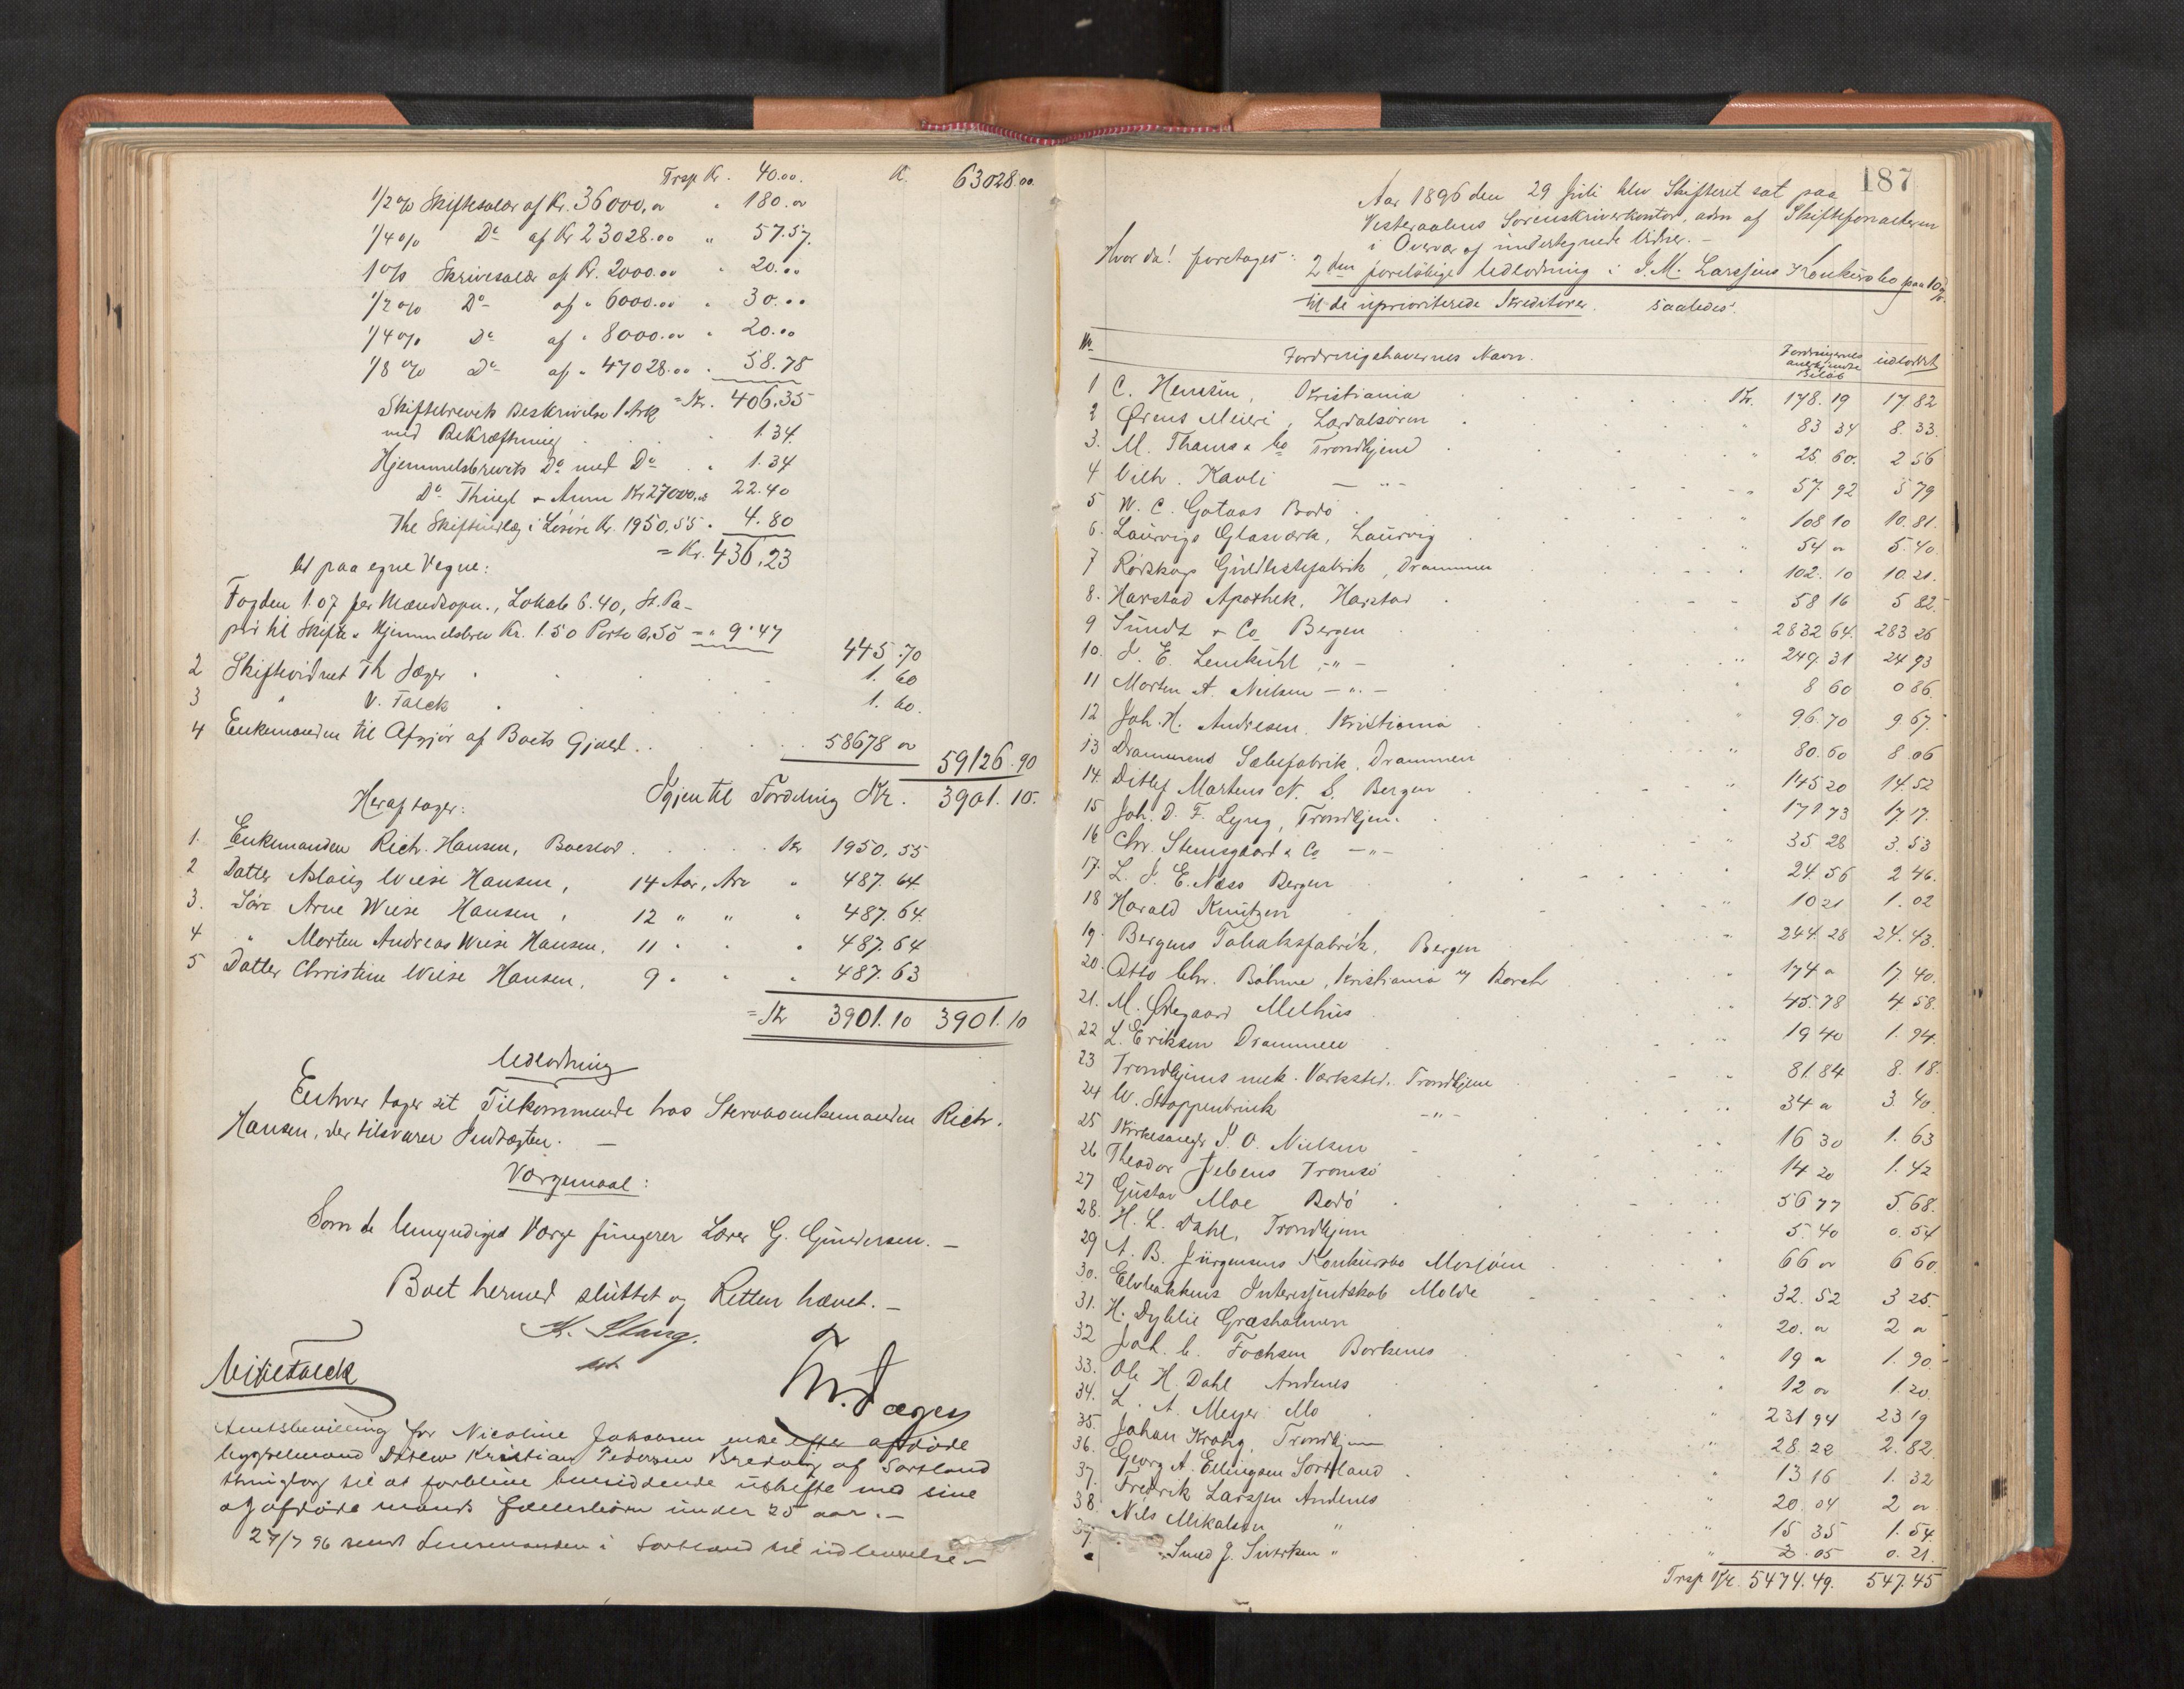 Trsp Kr. 40.00. K. 63028.00.
1/2 % Skiftesalær af Kr. 36000,00 " 180.00
1/4 % Do af Kr 23028.00 " 57.57.
1 % Skrivesalær af Kr. 2000.00 " 20.00
1/2 % Do af " 6000.00 " 30.00
1/4 % Do af " 8000.00 " 20.00
1/8 % Do af " 47028.00 . 58.78
= Kr. 406,35
Skiftebrevets Beskrivelse 1 Ark
med Bekræftning . . 1.34
Hjemmelsbrevets Do med Do . " 1.34
Do Thingl & Anm Kr 27000,00 22.40
Thl Skifteudlæg i Løsøre Kr. 1950,55 . 4.80
= Kr. 436,23
b) paa egne Vegne:
Fogden 1.07 for Mandtopn., Lokale 6.40, St. Pa-
pir til Skifte & Hjemmelsbrev Kr. 1.50 Porto 0,50 = " 9.47
445.70
2 Skiftevidnet Th Jæger . . . 1.60
3 " V. Falck . . . 1.60.
4 Enkemanden til Afgjør af Boets Gjæld . . . . 58678 00
59126.90
Igjen til Fordeling Kr. 3901.10.
Heraf tager:
1. Enkemanden Rich. Hansen, Boeslod . . . . Kr 1950,55
2 Datter Aslaug Wiese Hansen, 14 Aar, Arv " 487.64.
3. Søn Arne Wiese Hansen, 12 " " " 487.64.
4 " Morten Andreas Wiese Hansen, 11 " " " 487.64
5 Datter Christine Wiese Hansen, 9 " " " 487.63
= Kr 3901.10 3901.10
Udlodning
Enhver tager sit Tilkommende hos Stervboenkemanden Rich.
Hansen, der tilsvarer Indtægten. —
Værgemaal:
Som de Umyndiges Værge fungerer Lærer G. Gundersen. —
Boet hermed sluttet og Retten hævet. —
K. Stang.
cst
Th. Jæger
Amtsbevilling for Nicoline Jakobsen enke efter afdøde
bygselmand Ditlew Kristian Pedersen Bredvig af Sortland
thinglag til at forblive hensiddende i uskifte med sine
og afdøde mands Fællesbørn under 25 aar. —
27/7 96 sendt Lensmanden i Sortland til udlevelse —
187
Aar 1896 den 29 Juli blev Skifteret sat paa
Vesteraalens Sorenskriverkontor, adm af Skifteforvalteren
i Overvær af undertegnede Vidner. —
Hvor da! foretages: 2den foreløbige Udlodning i J. M. Larssens Konkursbo paa 10 %
til de uprioriterede Kreditorer. saaledes:
No. Fordringshavernes Navn. Fordringernes anerkjendte Beløb udloddet
1 C. Hensen, Kristiania . . . Kr. 178.19 17 82
2 Ørens Meieri, Lærdalsøren . . . " 83 34 8.33.
3. M. Thams & Co Trondhjem . . . " 25.60. 2 56
4 Vilh. Kavli — " — . . . " 57.92 5 79
5 W. C. Gotaas Bodø . . . " 108 10 10.81.
6. Laurvigs Glasværk, Laurvig . . . " 54 00 5.40.
7 Rørskogs Guldlistefabrik, Drammen . . . " 102.10 10.21.
8. Harstad Apothek, Harstad . . . " 58 16 5 82.
9 Sundt & Co Bergen . . . " 2832 64. 283 26
10. J. E. Lemkuhl — " — . . . " 249.31 24 93
11 Morten A. Nielsen — " — . . . " 8 60 0 86.
12 Joh. H. Andresen, Kristiania . . . " 96.70 9.67.
13 Drammens Sæbefabrik, Drammen . . . " 80.60 8.06
14. Ditlef Martens N. S. Bergen . . . " 145 20 14.52
15 Joh. D. F. Lyng, Trondhjem . . . " 171.73 17 17.
16 Chr. Steensgaard & Co — " — . . . " 35 28 3.53
17. L. J. E. Næss Bergen . . . " 24.56 2 46.
18 Harald Knutzen . . . " 10 21 1.02
19. Bergens Tobaksfabrik, Bergen . . . " 244.28 24.43.
20. Otto Chr. Böhme, Kristiania v/ Borch . . . " 174 00 17.40.
21. M. Ødegaard Melhus . . . " 45.78 4.58.
22 L. Eriksen Drammen . . . " 19 40 1.94.
23 Trondhjems mek. Værksted. Trondhjem . . . " 81.84 8.18.
24 W. Stoppenbrink — " — . . . " 34 00 3.40
25 Kirkesanger P. O. Nielsen . . . " 16 30 1.63
26 Theodor Jebens Tromsø . . . " 14 20 1.42
27 Gustav Moe Bodø . . . " 56 77 5.68.
28. H. L. Dahl, Trondhjem . . . " 5.40 0.54
29 A. B. Jürgensens Konkursbo Mosjøen . . . " 66 00 6 60.
30. Elvebakkens Interessentskab Molde . . . " 32.52 3 25.
31. H. Dyblie Græsholmen . . . " 20.00 2 00
32 Joh. C. Fochsen Borkenes . . . " 19 00 1.90.
33. Ole H. Dahl Andenes . . . " 12 00 1.20.
34. L. A. Meyer Mo . . . " 231 94 23 19
35. Johan Krohg, Trondhjem . . . " 28.22 2.82.
36. Georg A. Ellingsen Sortland . . . " 13 16 1.32
37. Fredrik Larssen Andenes . . . " 20.04 2 00
38. Nils Mikalsen " . . . " 15 35 1.54.
39 Smed J. Sivertsen " . . . " 2.05 0.21.
Trsp Kr. 5474.49. 547.45